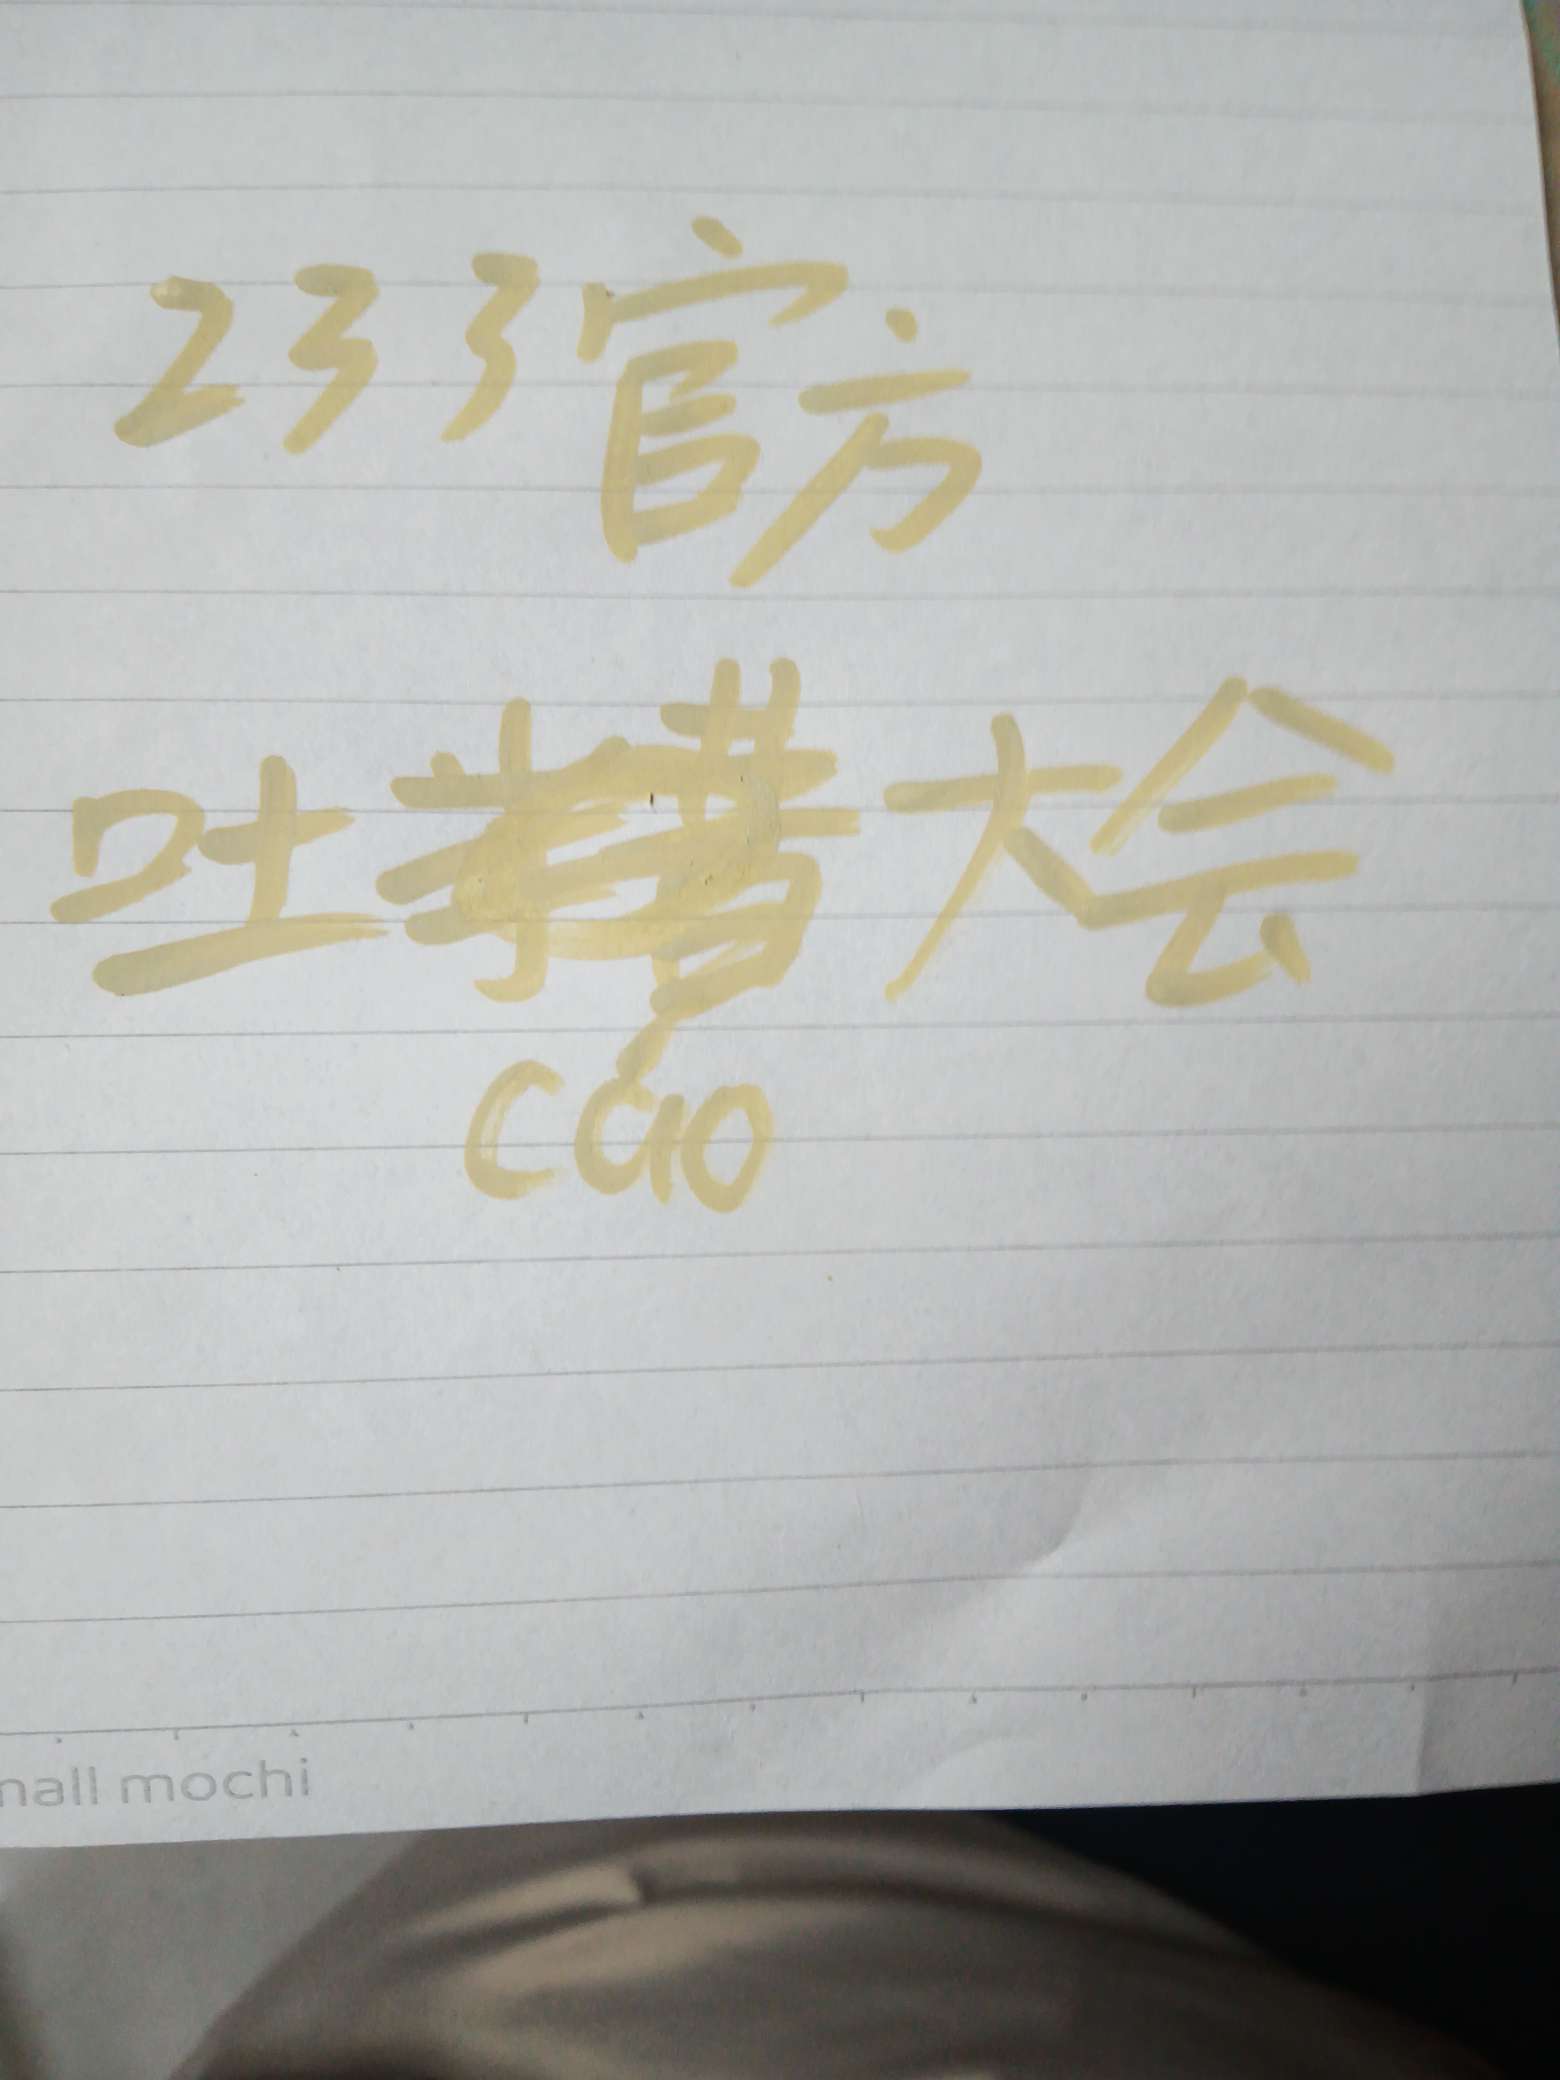 233官方
吐大会
cao
mall mochi